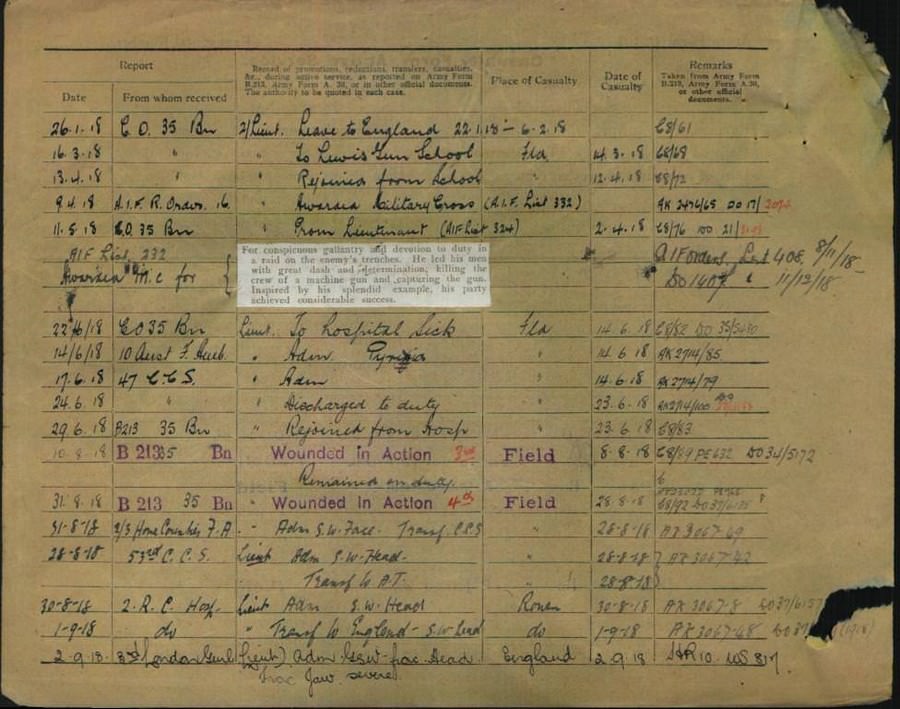 Report
Record of promotions, reductions, transfers, casualties,
&c., during active service, as reported on Army Form
B.213, Army Form A. 36, or in other official documents.
The authority to be quoted in each case.
Place of Casualty
Date of
Casualty
Remarks
Taken from Army Form
B.213, Army Form A.36,
or other official
documents.
Date From whom received
26.1.18 C.O. 35 Bn 2/Lieut. Leave to England 22.1.18 - 6.2.18 C8/61
16.3.18 " " To Lewis Gun School Fld 14.3.18 C8/68
13.4.18 " " Rejoined from School " 12.4.18 C8/72
9.4.18 A.I.F. R. Orders. 16 " Awarded Military Cross (A.I.F. List 332) AK 2476/65 DO 17/
11.5.18 C.O. 35 Bn " Prom Lieutenant (AIF List 324) 2.4.18 C8/76 DO 21/
AIF List 232
Awarded M.C for {
For conspicuous gallantry and devotion to duty in
a raid on the enemy's trenches. He led his men
with great dash and determination; killing the
crew of a machine gun and capturing the gun.
Inspired by his splendid example, his party
achieved considerable success.
AIF orders. List 408, 8/11/18
DO 140 " 11/12/18
22/6/18 CO 35 Bn Lieut. To Hospital Sick Fld 14.6.18 C8/82 DO 35/5480
14/6/18 10 Aust F. Amb. " Adm Pyrexia " 14.6.18 AK 2714/85
17.6.18 47 C.C.S. " Adm " 14.6.18 AK 2714/79
24.6.18 " " Discharged to duty 23.6.18 AK2714/100
29.6.18 B213 35 Bn " Rejoined from Hosp " 23.6.18 C8/83
10.8.18 B 213 35 Bn Wounded in Action 3rd Field 8.8.18 C8/89 PE632 DO 34/5172
Remained on duty.
31.8.18 B 213 35 Bn " Wounded in Action 4th Field 28.8.18 C8/92
31-8-18 2/3 Home Counties F.A. " Adm S.W. Face. Transf. C.C.S " 28-8-18 AK 3067-69
28-8-18 53rd C.C.S. Lieut Adm S.W. Head. 28-8-18 AK 3067-42
Transf to A.T. " 28-8-18
30-8-18 2. R. C. Hosp. Lieut Adm S.W. Head Rouen 30-8-18 AK 3067-8
1-9-18 do " Transf to England - S.W. Head do 1-9-18 AK 3067-48
2-9-18 3rd London Genl (Lieut) Adm GSW frac. Head England 2.9.18 HR10
Frac Jaw severe